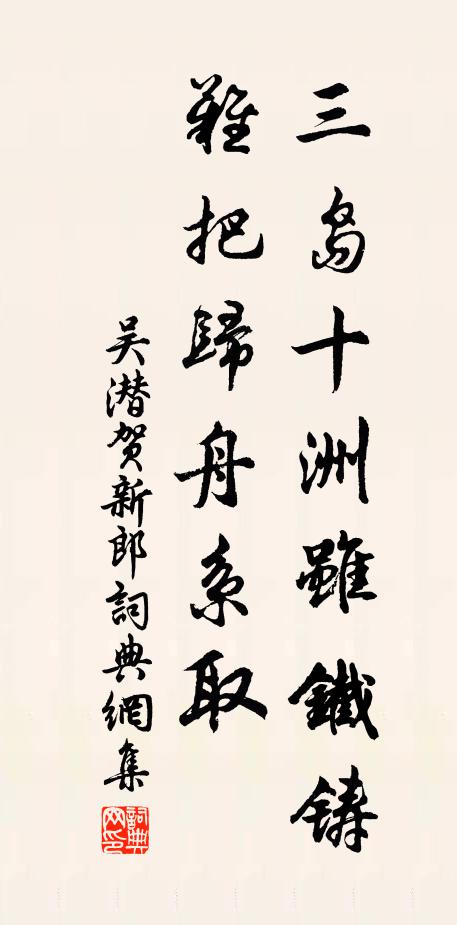 三岛十洲雖鐵鋳
難把歸舟系取
吴潜贺新郎詞典網集
詞典網印